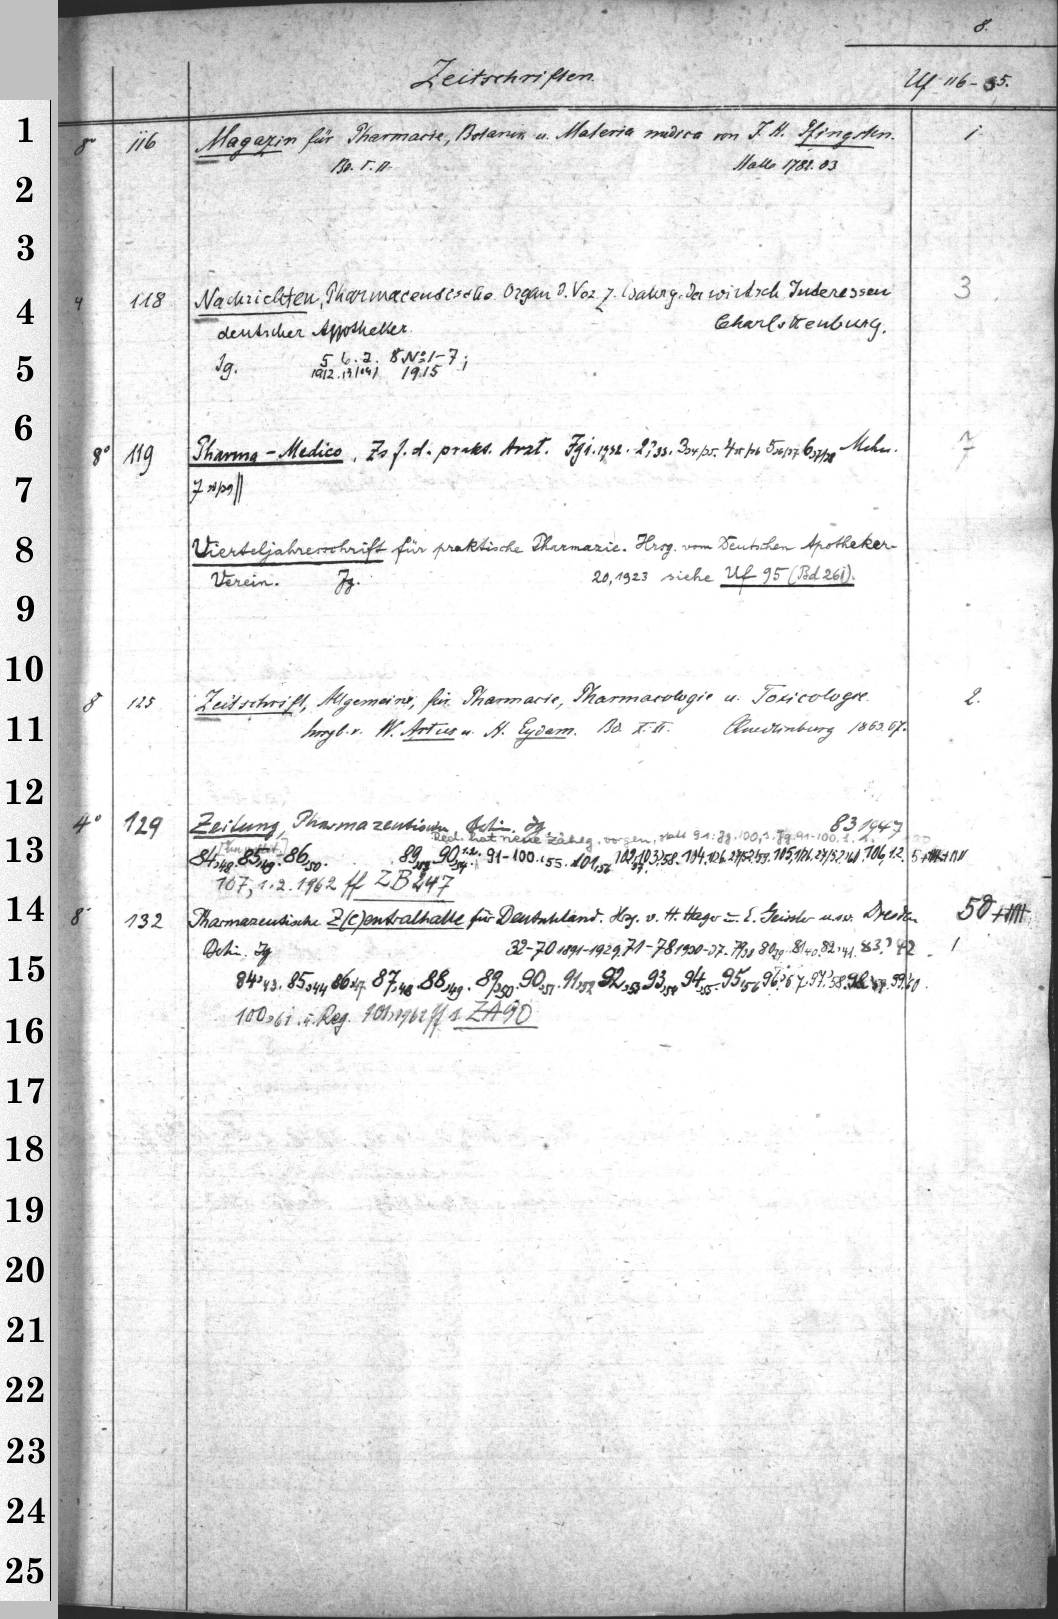 8.
Zeitschriften. Uf 116-35.
1 8° 116 Magazin für Pharmacie, Botanik u. Materia medica von J. H. Pfingsten. 1
Bd. I. II. Halle 1782. 83
2
3
4 118 Nachrichten, Pharmaceutische. Organ d. Ver. z. Wahrg. der wirtsch. Interessen 3
4 deutscher Apotheker. Charlottenburg.
5 Jg. 5. 6. 7. 8 No 1-7;
1912. 13 1914 1915
6
8° 119 Pharma-Medico, Zs f. d. prakt. Arzt. Jg 1. 1932. 2, 33. 3 34/35. 4 35/36 5 36/37 6 37/38 Mchn. 7
7 7 38/39 ||
8 Vierteljahresschrift für praktische Pharmazie. Hrsg. vom Deutschen Apotheker-
Verein. Jg. 20, 1923 siehe Uf 95 (Bd 261).
9
10
8 125 Zeitschrift, Allgemeine, für Pharmacie, Pharmacologie u. Toxicologie 2.
11 hrsgb. v. W. Artus u. H. Eydam. Bd. I. II. Quedlinburg 1863. 67.
12
4° 129 Zeitung, Pharmazeutische Berlin. Jg. 83 1947
Red. hat neue Zählg. vorgen. statt 91: Jg. 100,
13 84,48 85,49 86,50. 89,53 90,54 91-100,'55. 101,56
107, 1.2. 1962 ff ZB 247
14 8° 132 Pharmazeutische Z(c)entralhalle für Deutschland. Hsg. v. H. Hager u. E. Geissler u. sw. Dresden 50
Berlin. Jg 32-70 1891-1929, 71-78 1930-37. 79,38 80,39. 81,40. 82,41. 83, 42. 1
15 84,43. 85,44 86,47 87,48 88,49. 89,50 90,51. 91,52 92,53 93,54 94,55. 95,56 96, 97,58. 98, 99,60.
100,61. u. Reg. 101,1962 ff s. ZA 90
16
17
18
19
20
21
22
23
24
25